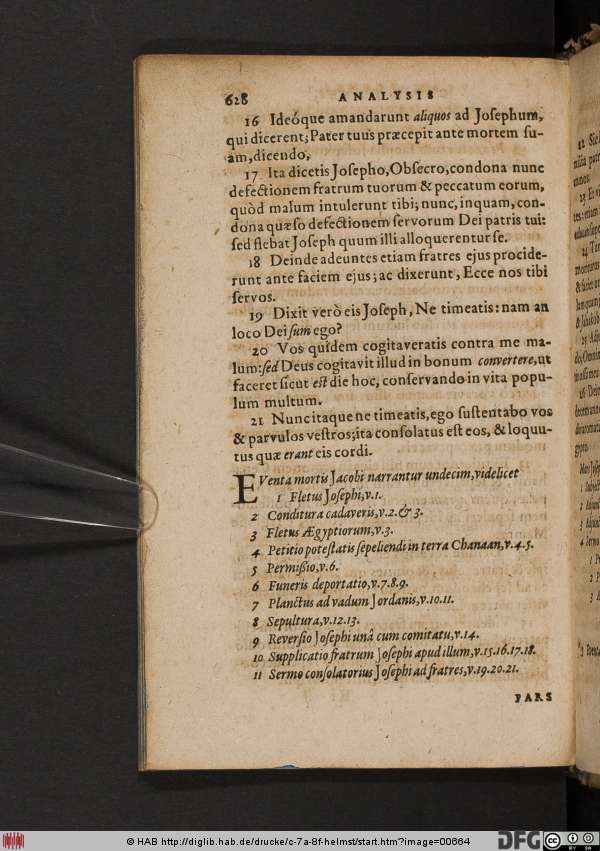 628 ANALYSIS
16 Ideóque amandarunt aliquos ad Josephum,
qui dicerent; Pater tuus præcepit ante mortem su-
am, dicendo,
17 Ita dicetis Josepho, Obsecro, condona nunc
defectionem fratrum tuorum & peccatum eorum,
quòd malum intulerunt tibi; nunc, inquam, con-
dona quæso defectionem servorum Dei patris tui:
sed flebat Joseph quum illi alloquerentur se.
18 Deinde adeuntes etiam fratres ejus procide-
runt ante faciem ejus; ac dixerunt, Ecce nos tibi
servos.
19 Dixit verò eis Joseph, Ne timeatis: nam an
loco Dei sum ego?
20 Vos quidem cogitaveratis contra me ma-
lum: sed Deus cogitavit illud in bonum convertere, ut
faceret sicut est die hoc, conservando in vita popu-
lum multum.
21 Nunc itaque ne timeatis, ego sustentabo vos
& parvulos vestros; ita consolatus est eos, & loquu-
tus quæ erant eis cordi.
EVenta mortis Jacobi narrantur undecim, videlicet
1 Fletus Josephi, v.1.
2 Conditura cadaveris, v.2.& 3.
3 Fletus Ægyptiorum, v.3.
4 Petitio potestatis sepeliendi in terra Chanaan, v.4.5.
5 Permißio, v.6.
6 Funeris deportatio, v.7.8.9.
7 Planctus ad vadum Jordanis, v.10.11.
8 Sepultura, v.12.13.
9 Reversio Josephi unâ cum comitatu, v.14.
10 Supplicatio fratrum Josephi apud illum, v.15.16.17.18.
11 Sermo consolatorius Josephi ad fratres, v.19.20.21.
PARS
© HAB http://diglib.hab.de/drucke/c-7a-8f-helmst/start.htm?image=00664
DFG
cc BY SA